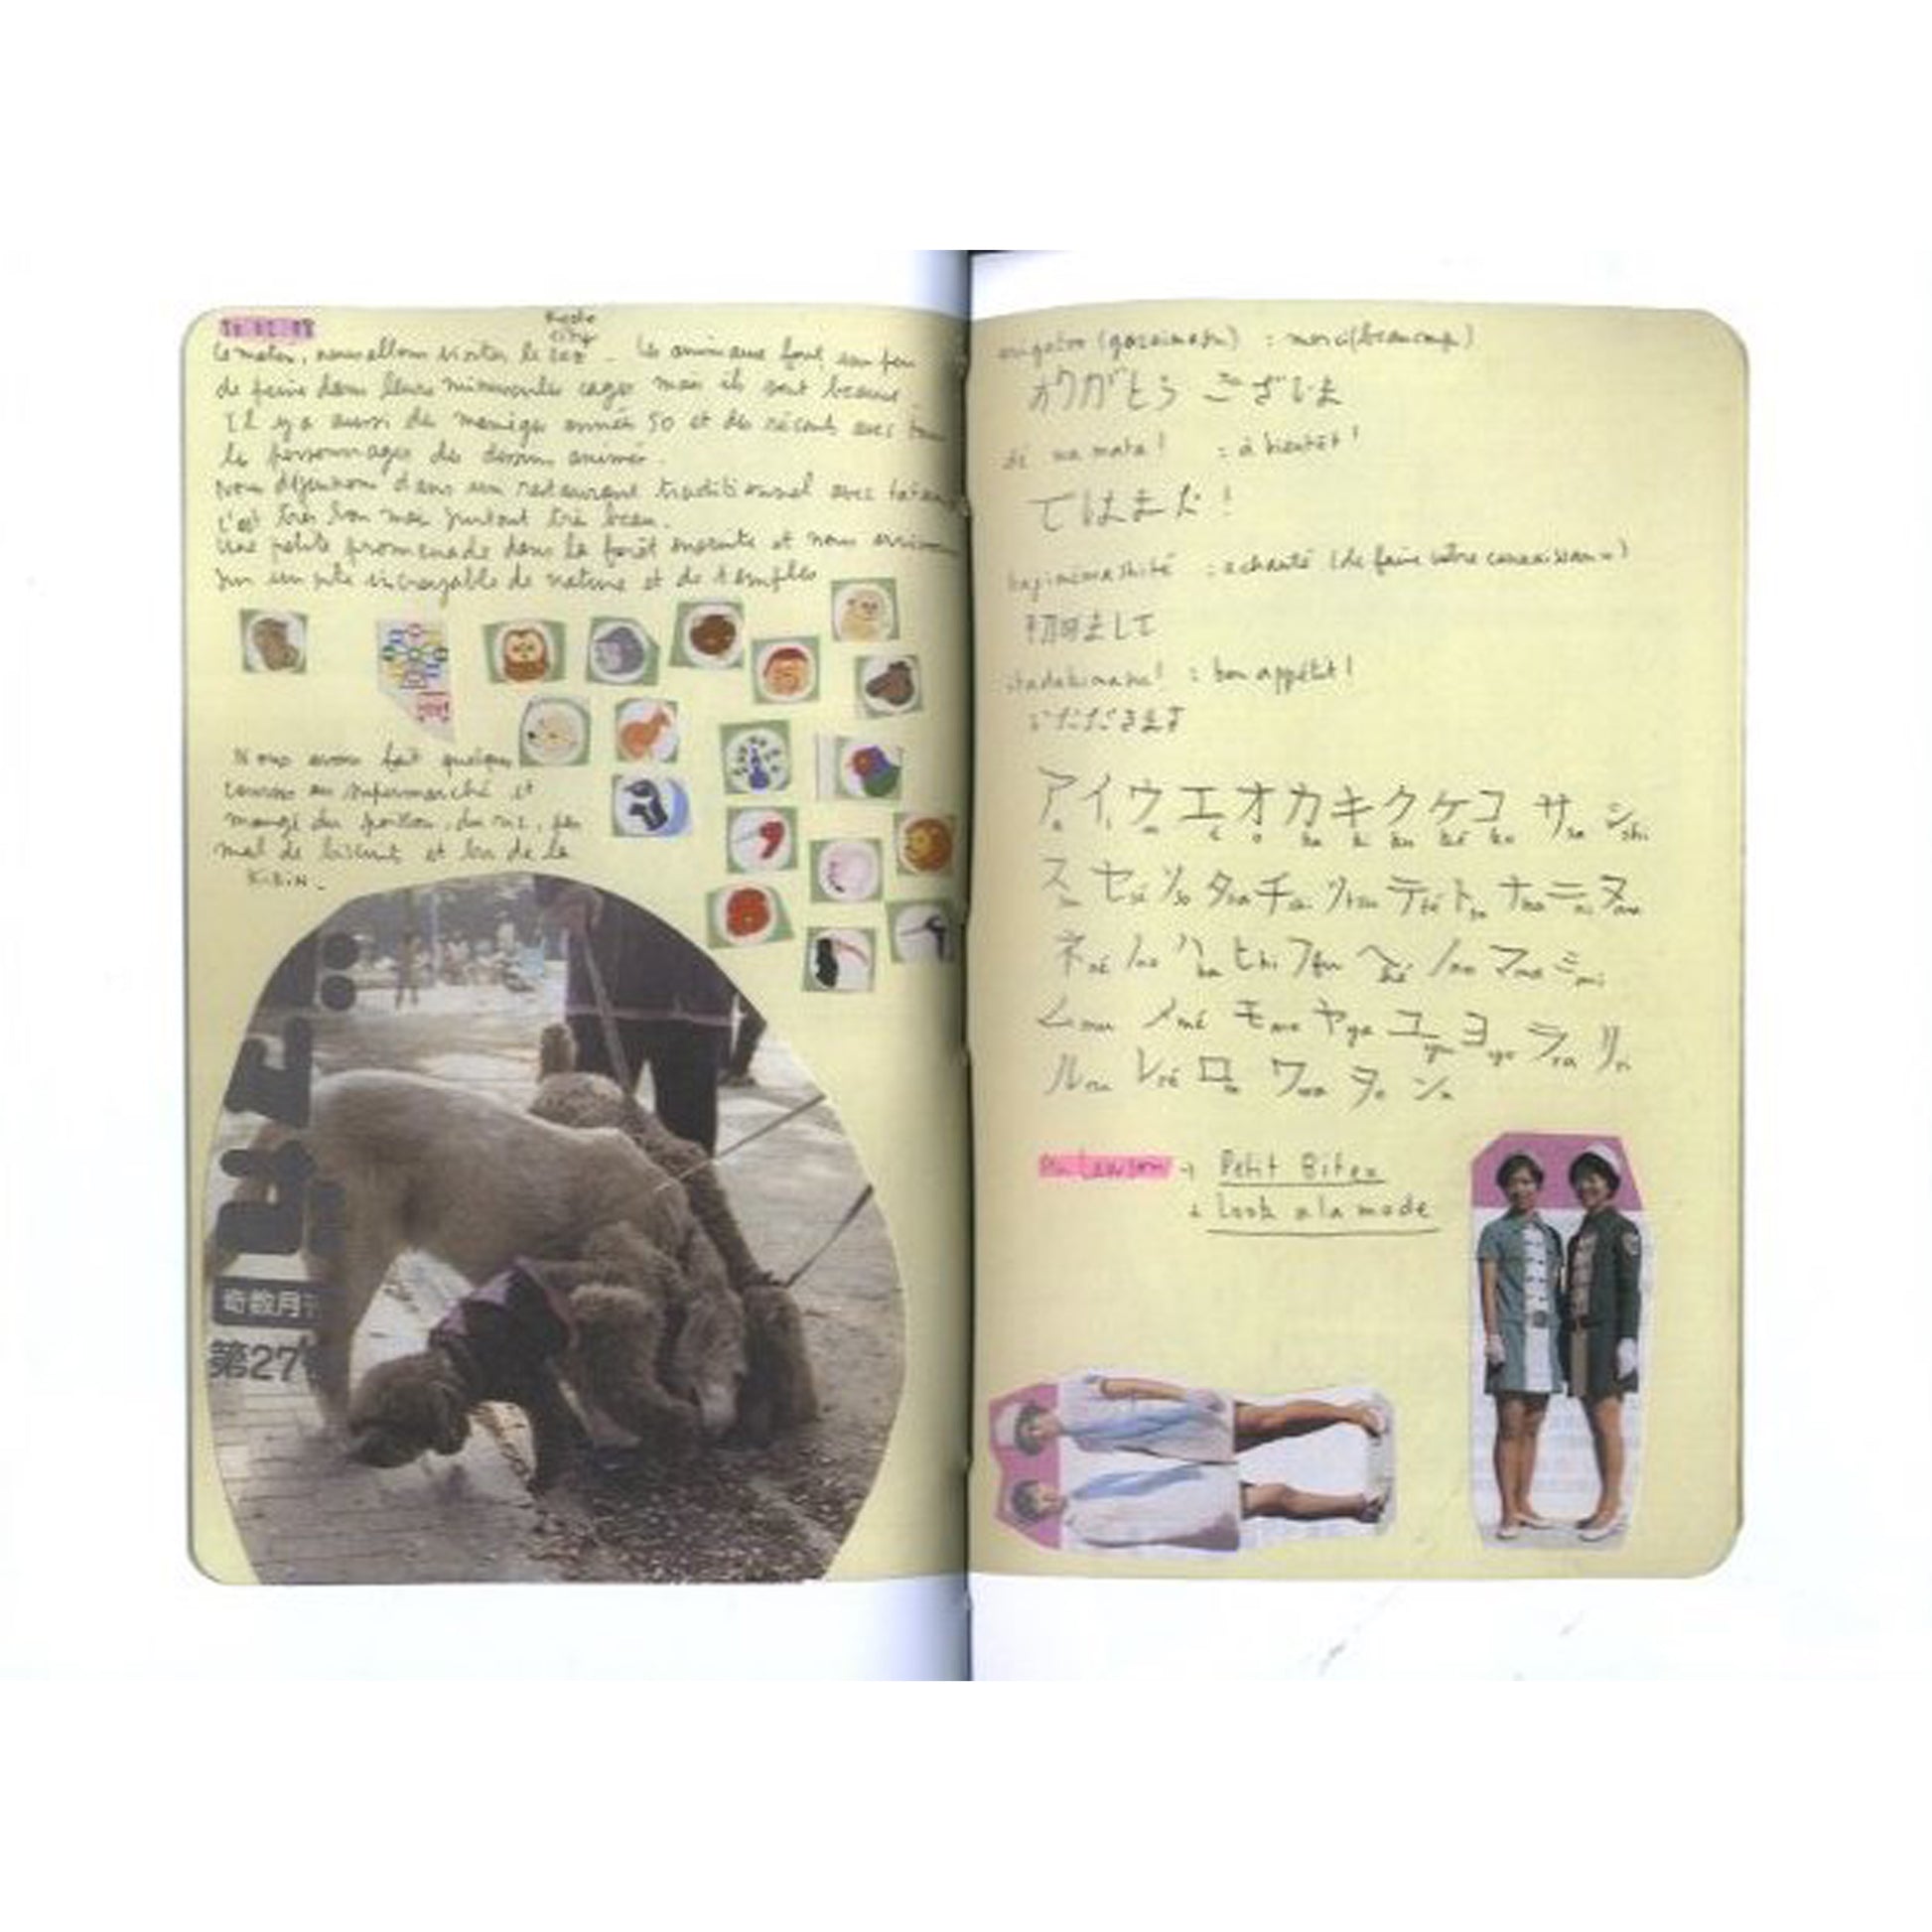 Le matin, nous allons visiter le zoo. Les animaux font un peu
de peine dans leurs minuscules cages mais ils sont beaux.
Il y a aussi des manèges année 50 et des récents avec
les personnages des dessins animés.
Nous déjeunons dans un restaurant traditionnel avec
c'est très bon mais surtout très beau.
Une petite promenade dans la forêt ensuite et nous
sur un site incroyable de nature et de temples
Nous avons fait quelques
courses au supermarché et
mangé du poisson, du riz, pas
mal de biscuit et bu de la
KIRIN.
奇数月
第27
arigatoo (gozaimasu) : merci (beaucoup)
オクガとう ございま
dé wa mata! : à bientôt!
ではまだ!
hajimémashité : enchanté (de faire votre connaissance)
初めまして
itadakimasu! : bon appétit!
いただきます
ア a イ i ウ u エ é オ o カ ka キ ki ク ku ケ ké コ ko サ sa シ shi
ス su セ sé ソ so タ ta チ ツ tsu テ té ト to ナ na ニ ni ヌ nu
ネ né ノ no ハ ha ヒ hi フ fu ヘ hé ノ no マ ma ミ mi
ム mu メ mé モ mo ヤ ya ユ yu ヨ yo ラ ra リ ri
ル ru レ ré ロ ro ワ wa ヲ o ン n
au Lawson → Petit Bites
+ Look a la mode